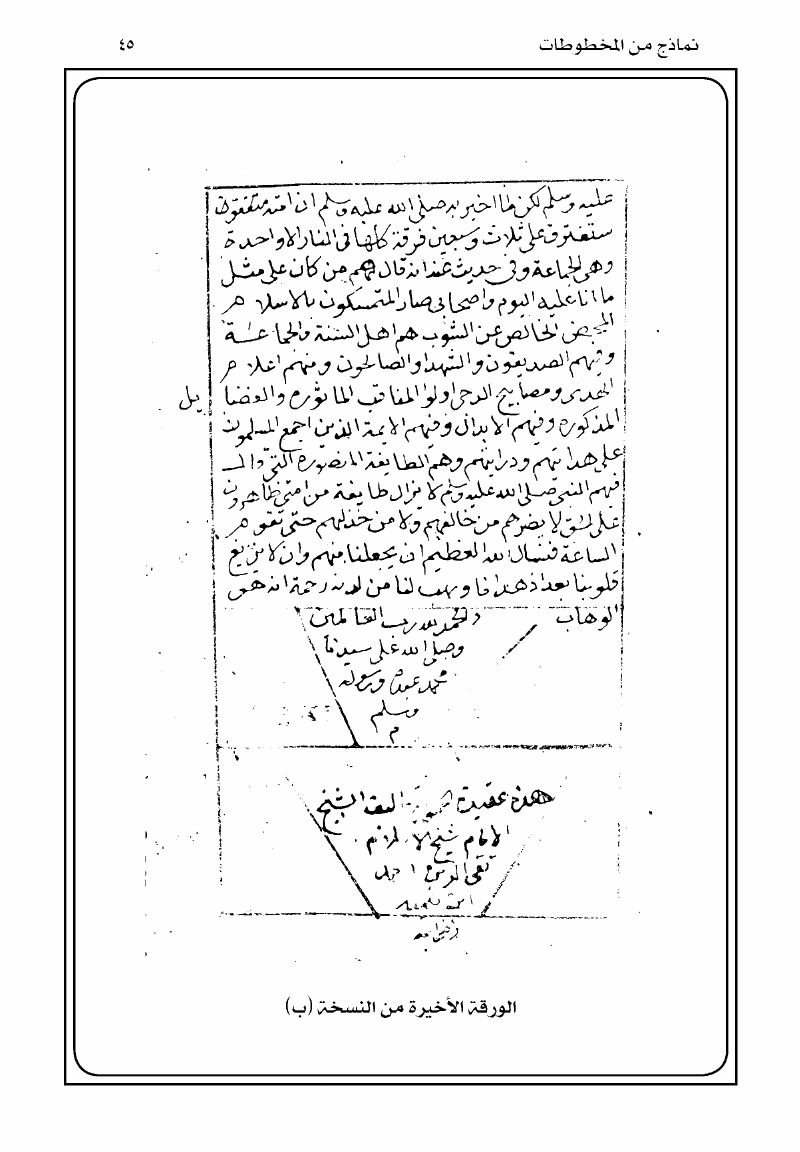 نماذج من المخطوطات ٤٥
عليه وسلم لكن لما اخبر به صلى الله عليه وسلم ان امته
ستفترق على ثلاث وسبعين فرقة كلها فى النار الا واحدة
وهى الجماعة وفى حديث عنه انه قال هم من كان على مثل
ما انا عليه اليوم واصحابى صار المتمسكون بالاسلام
المحض الخالص عن الشوب هم اهل السنة والجماعة
وفيهم الصديقون والشهدا والصالحون ومنهم اعلام
الهدى ومصابيح الدجى اولوا المناقب الماثوره والفضايل
المذكوره وفيهم الابدال وفيهم الايمة الذين اجمع المسلمون
على هدايتهم ودرايتهم وهم الطايفة المنصوره التى قال
فيهم النبى صلى الله عليه وسلم لا يزال طايفة من امتى ظاهرون
على الحق لا يضرهم من خالفهم ولا من خذلهم حتى تقوم
الساعة فنسال الله العظيم ان يجعلنا منهم وان لا يزيغ
قلوبنا بعد اذ هدانا ويهب لنا من لدنه رحمة انه هو
الوهاب والحمد لله رب العالمين
وصلى الله على سيدنا
محمد عبده ورسوله
وسلم
م
هذه عقيدة تاليف الشيخ
الامام شيخ
تقى الدين احمد
ابن تيميه
رضى الله
الورقة الأخيرة من النسخة (ب)